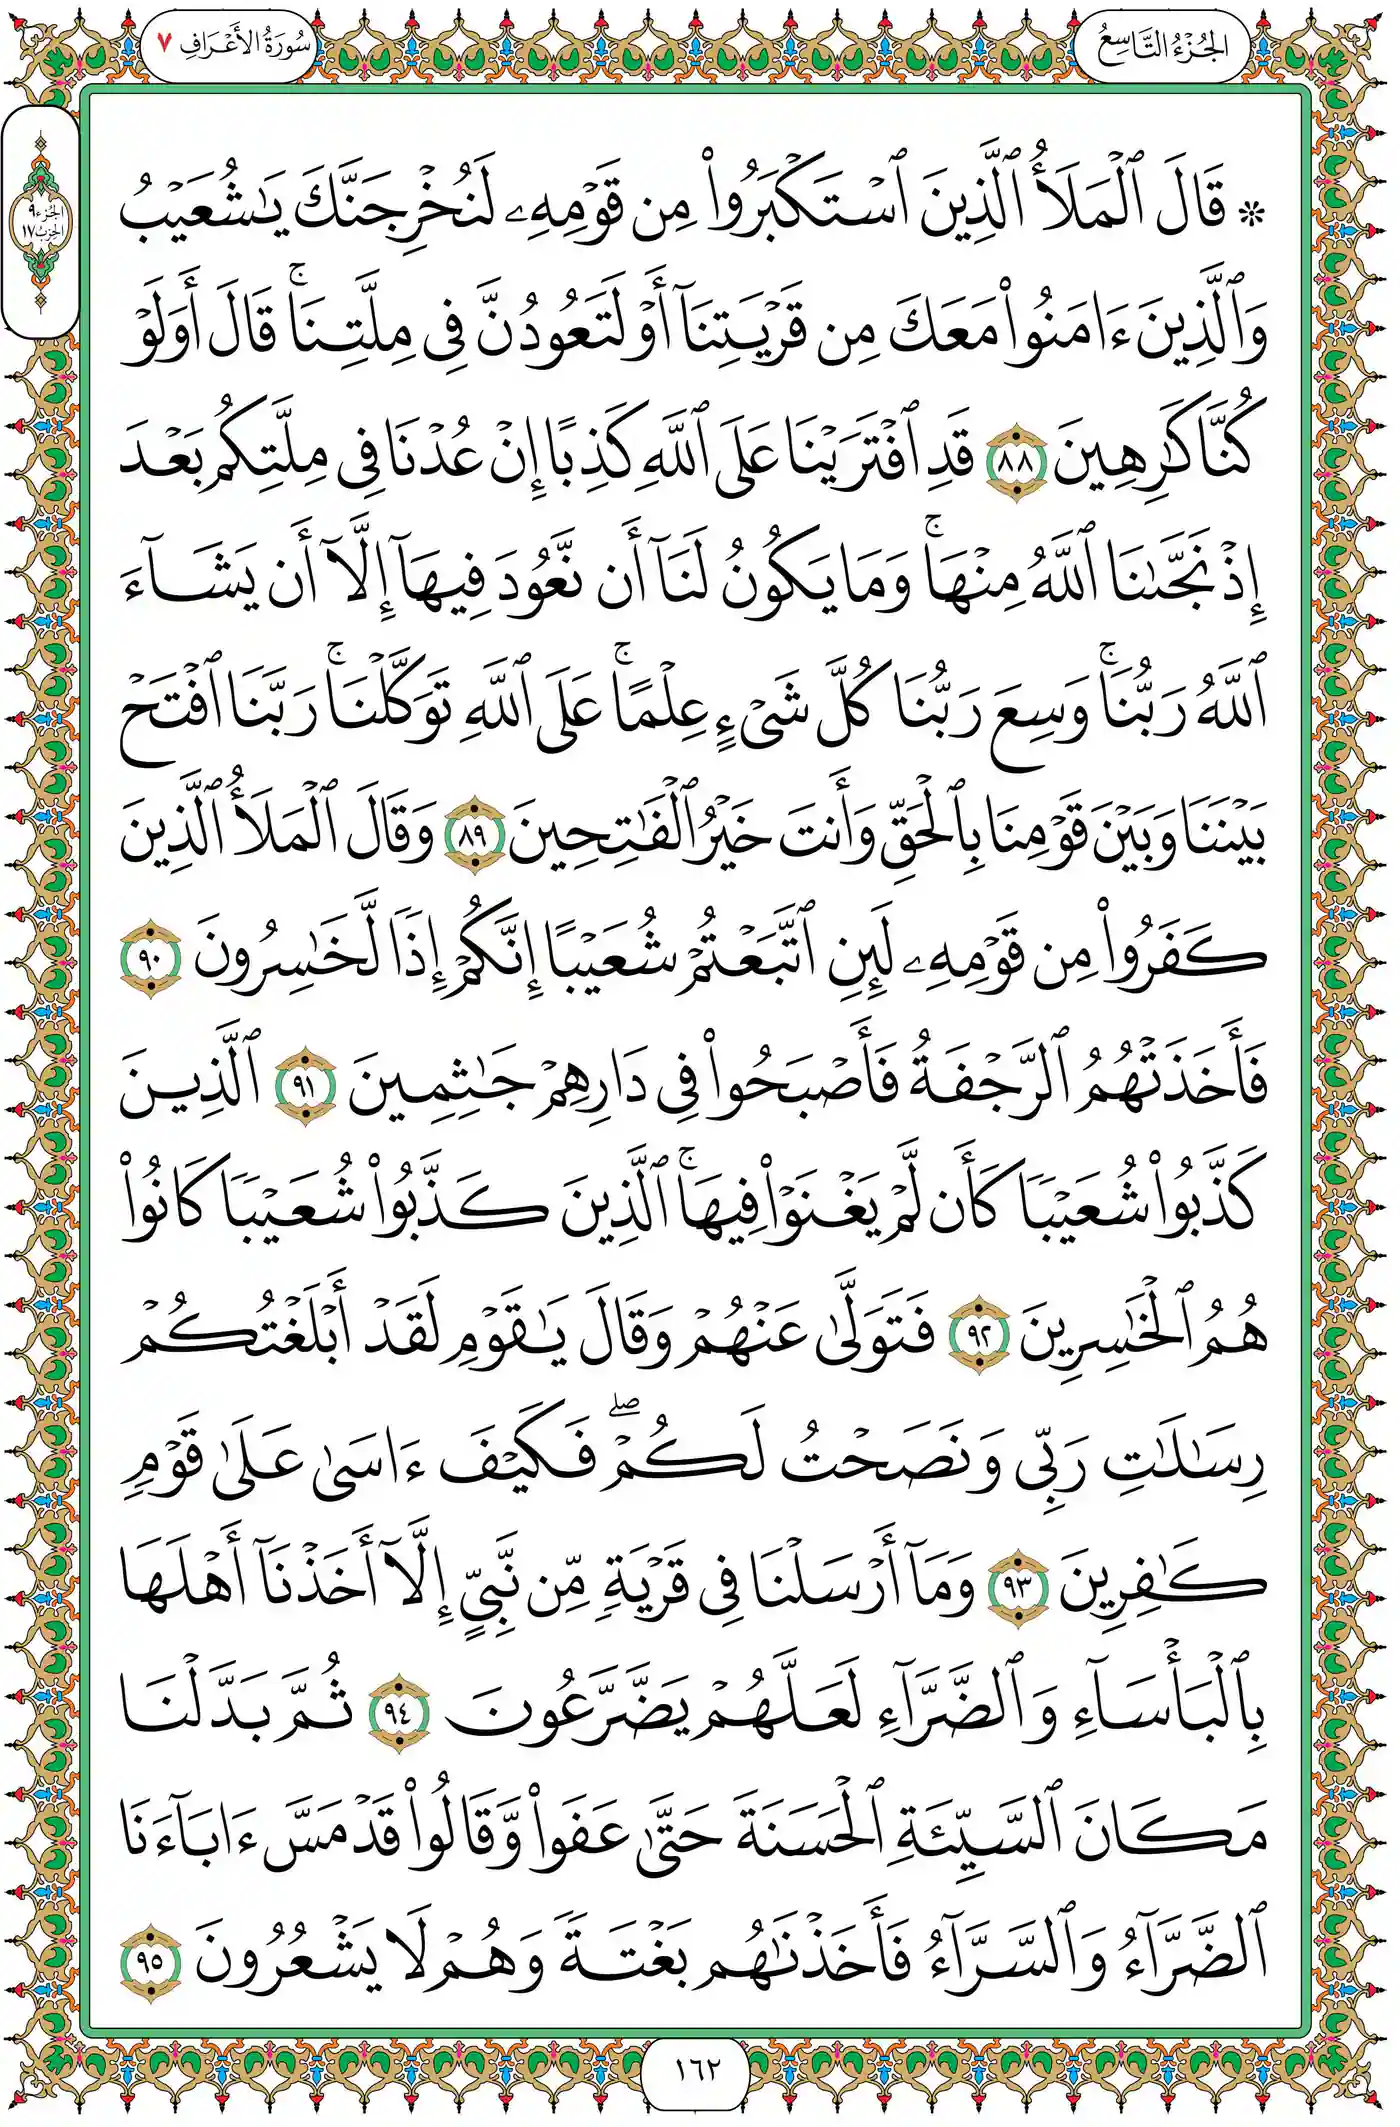 الجُزْءُ التَّاسِعُ
سُورَةُ الأَعْرَافِ ٧
الجزء ٩
الحزب ١٧
۞ قَالَ ٱلْمَلَأُ ٱلَّذِينَ ٱسْتَكْبَرُوا۟ مِن قَوْمِهِۦ لَنُخْرِجَنَّكَ يَـٰشُعَيْبُ
وَٱلَّذِينَ ءَامَنُوا۟ مَعَكَ مِن قَرْيَتِنَآ أَوْ لَتَعُودُنَّ فِى مِلَّتِنَا ۚ قَالَ أَوَلَوْ
كُنَّا كَـٰرِهِينَ ٨٨ قَدِ ٱفْتَرَيْنَا عَلَى ٱللَّهِ كَذِبًا إِنْ عُدْنَا فِى مِلَّتِكُم بَعْدَ
إِذْ نَجَّىٰنَا ٱللَّهُ مِنْهَا ۚ وَمَا يَكُونُ لَنَآ أَن نَّعُودَ فِيهَآ إِلَّآ أَن يَشَآءَ
ٱللَّهُ رَبُّنَا ۚ وَسِعَ رَبُّنَا كُلَّ شَىْءٍ عِلْمًا ۚ عَلَى ٱللَّهِ تَوَكَّلْنَا ۚ رَبَّنَا ٱفْتَحْ
بَيْنَنَا وَبَيْنَ قَوْمِنَا بِٱلْحَقِّ وَأَنتَ خَيْرُ ٱلْفَـٰتِحِينَ ٨٩ وَقَالَ ٱلْمَلَأُ ٱلَّذِينَ
كَفَرُوا۟ مِن قَوْمِهِۦ لَئِنِ ٱتَّبَعْتُمْ شُعَيْبًا إِنَّكُمْ إِذًا لَّخَـٰسِرُونَ ٩٠
فَأَخَذَتْهُمُ ٱلرَّجْفَةُ فَأَصْبَحُوا۟ فِى دَارِهِمْ جَـٰثِمِينَ ٩١ ٱلَّذِينَ
كَذَّبُوا۟ شُعَيْبًا كَأَن لَّمْ يَغْنَوْا۟ فِيهَا ۚ ٱلَّذِينَ كَذَّبُوا۟ شُعَيْبًا كَانُوا۟
هُمُ ٱلْخَـٰسِرِينَ ٩٢ فَتَوَلَّىٰ عَنْهُمْ وَقَالَ يَـٰقَوْمِ لَقَدْ أَبْلَغْتُكُمْ
رِسَـٰلَـٰتِ رَبِّى وَنَصَحْتُ لَكُمْ ۖ فَكَيْفَ ءَاسَىٰ عَلَىٰ قَوْمٍ
كَـٰفِرِينَ ٩٣ وَمَآ أَرْسَلْنَا فِى قَرْيَةٍ مِّن نَّبِىٍّ إِلَّآ أَخَذْنَآ أَهْلَهَا
بِٱلْبَأْسَآءِ وَٱلضَّرَّآءِ لَعَلَّهُمْ يَضَّرَّعُونَ ٩٤ ثُمَّ بَدَّلْنَا
مَكَانَ ٱلسَّيِّئَةِ ٱلْحَسَنَةَ حَتَّىٰ عَفَوا۟ وَّقَالُوا۟ قَدْ مَسَّ ءَابَآءَنَا
ٱلضَّرَّآءُ وَٱلسَّرَّآءُ فَأَخَذْنَـٰهُم بَغْتَةً وَهُمْ لَا يَشْعُرُونَ ٩٥
١٦٢